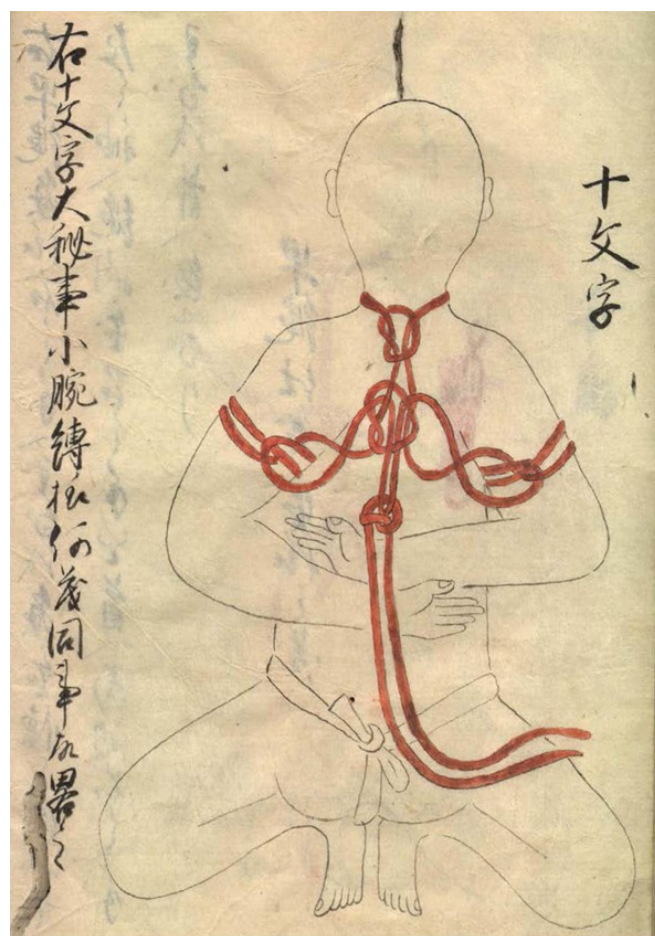 十文字
右十文字大秘事小腕縛様何茂同事故畧之